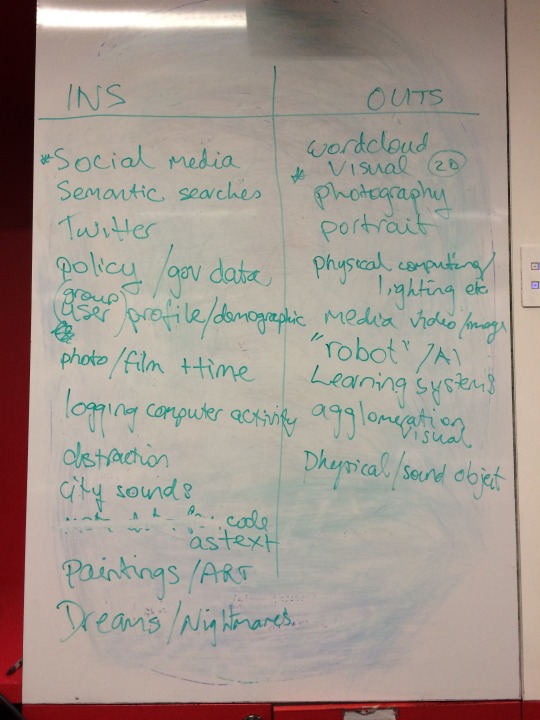 INS
*Social media
Semantic searches
Twitter
policy /gov data
(group)
user/profile/demographic
photo/film +time
logging computer activity
distraction
city sounds
code
as text
Paintings/ART
Dreams/Nightmares
OUTS
wordcloud
* visual 2D
photography
portrait
physical computing/
lighting etc
media video/image
"robot"/AI
Learning systems
agglomeration
visual
Physical/sound object